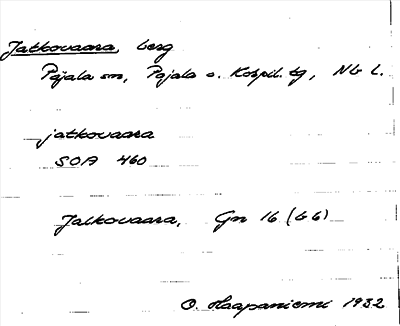 Jatkovaara, berg
Pajala sn, Pajala o. Korpil. tg, Nb L.
jatkovaara
SOA 460
Jatkovaara, Gn 16 (bb)
O. Haapaniemi 1932